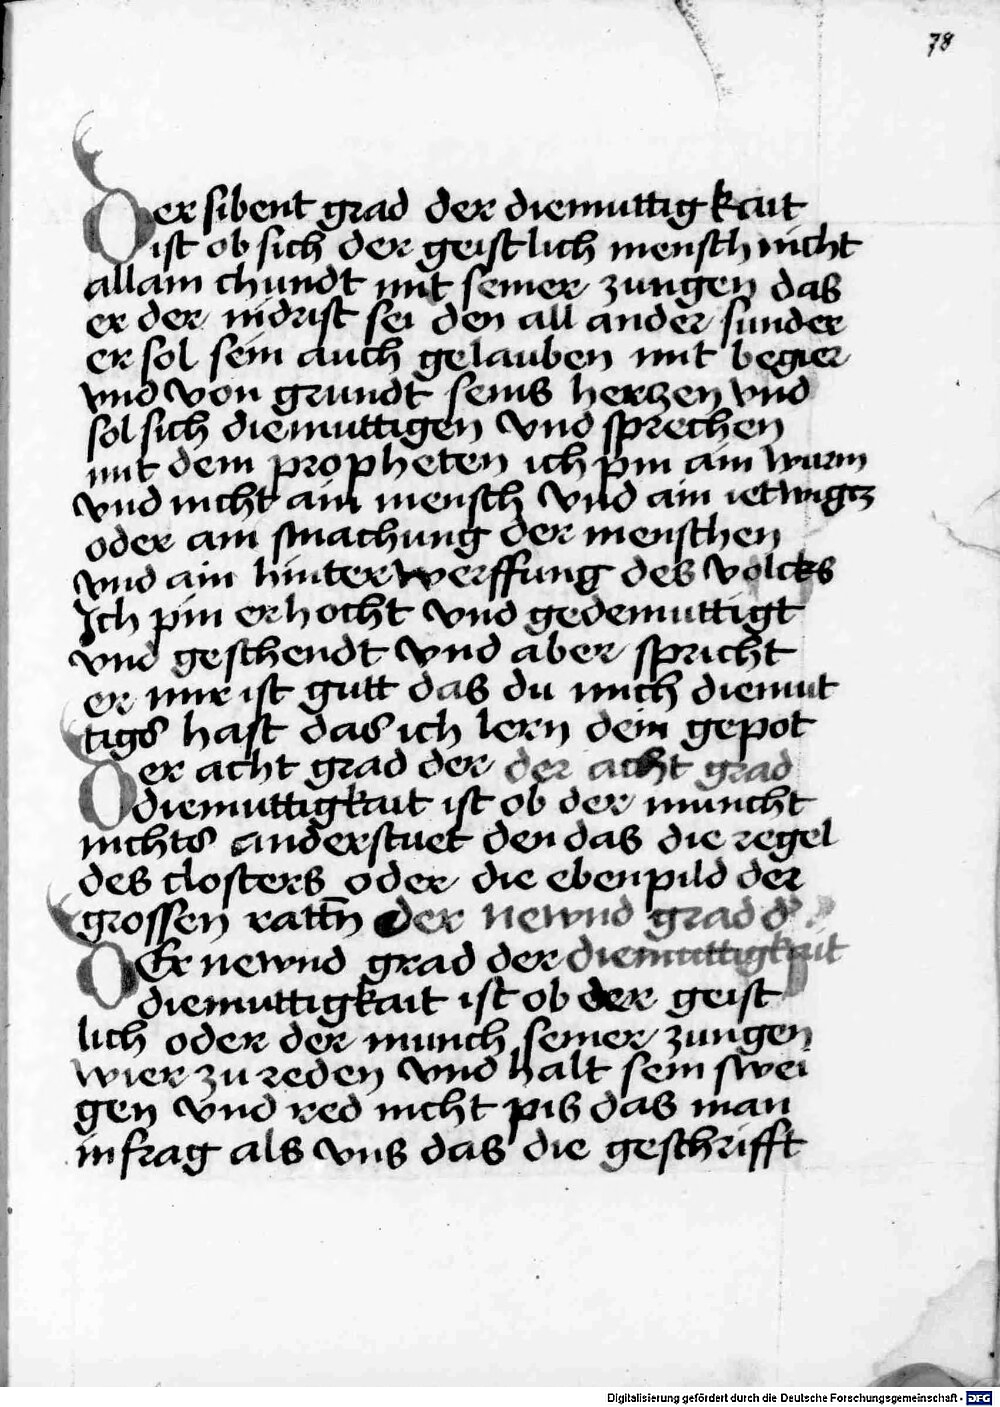 78
Der sibent grad der diemuttigkait
ist ob sich der geistlich mensch nicht
allain chundt mit seiner zungen das
er der nidrist sei den all ander sunder
er sol sein auch gelauben mit begier
vnd von grundt seins herczen vnd
sol sich diemuttigen vnd sprechen
mit dem propheten ich pin ain wurm
vnd nicht ain mensch vnd ain ietwigcz
oder ain smachung der menschen
vnd ain hinterwerffung des volcks
Ich pin erhocht vnd gedemuttigt
vnd geschendt vnd aber spricht
er mir ist gutt das du mich diemut
tigs hast das ich lern dein gepot
Der acht grad der der acht grad
diemuttigkait ist ob der muncht
nichts anderstuet den das die regel
des closters oder die ebenpild der
grossen rattn̄ der newnd grad d'
DEr newnd grad der diemuttigkait
diemuttigkait ist ob der geist
lich oder der munch seiner zungen
wier zu reden vnd halt sein swei
gen vnd red nicht pis das man
in frag als vns das die geschrifft
Digitalisierung gefördert durch die Deutsche Forschungsgemeinschaft - DFG